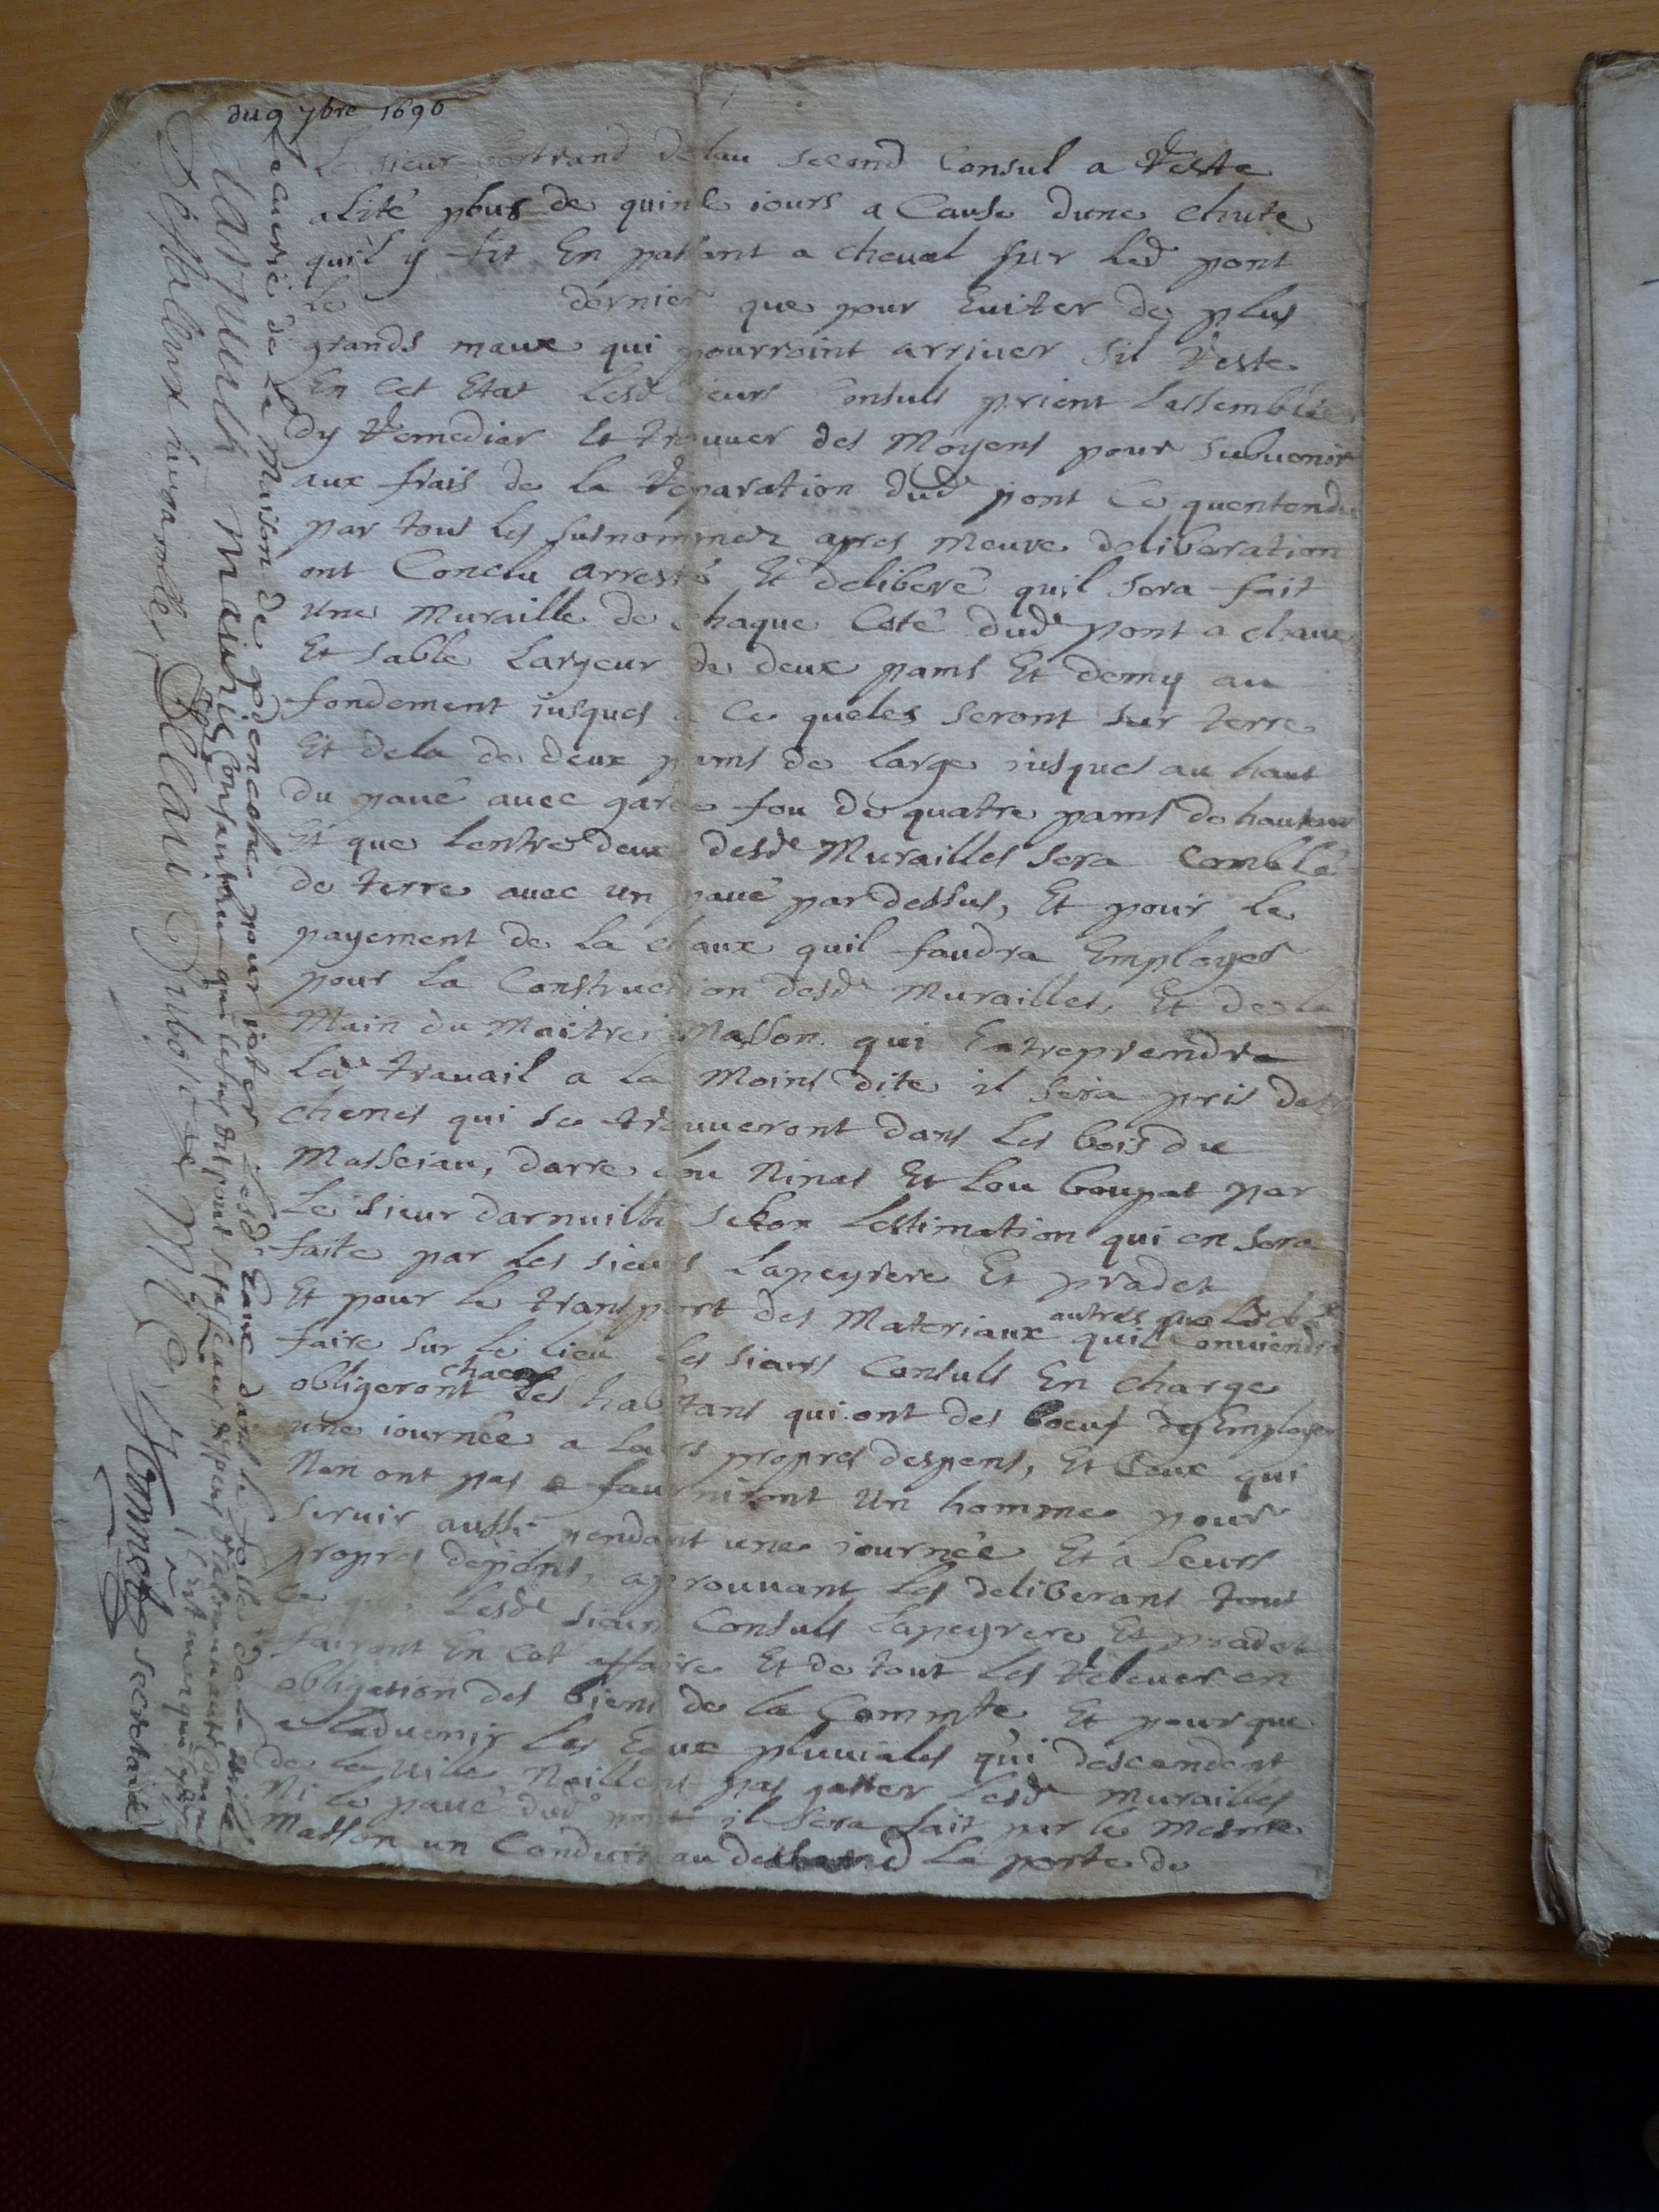 du 9 7bre 1696
Le sieur bertrand delau second Consul a resté
alité plus de quinse iours a Cause dune chute
quil y fit En passant a cheual sur led pont
le dernier que pour Euiter de plus
grands maux qui pourroint arriuer sil reste
En cet Etat lesd sieurs Consuls prient lassemblée
dy remedier et trouuer des Moyens pour subuenir
aux frais de la reparation dud pont Ce quentendu
par tous les susnommez apres meure deliberation
ont Conclu arresté Et deliberé quil sera fait
Une Muraille de chaque Coté dud pont a chaux
Et sable Largeur de deux pams Et demy au
fondement iusques a Ce queles seront sur terre
Et dela de deux pams de large iusques au haut
du paué auec garde fou de quatre pams de hauteur
Et que lentre deux desd Murailles sera Comblé
de terre auec un paué par dessus, Et pour le
payement de la chaux quil faudra Employer
pour la Construction desd Murailles, Et de la
Main du Maitre Masson qui Entreprendra
Led trauail a la Moins dite il sera pris des
chenes qui se trouueront dans les bois du
Masseiau, darre lou Ninas Et lou boupat par
Le sieur darnuilh selon lestimation qui en sera
faite par les sieurs Lapeyrere Et pradet
Et pour le transport des Materiaux autres que quil Conuiendra
faire sur le lieu les sieurs Consuls En charge
obligeront les habitans qui ont des boeuf dy Employer
une iournée a leurs propres despens, Et Ceux qui
Nen ont pas fourniront Un homme pour
seruir aussi pendant une iournée Et a Leurs
propres depens, aprouuant les deliberans tout
ce que Lesd sieurs Consuls Lapeyrere Et pradet
fairont En Cet affaire Et de tout les releuer en
obligation des biens de la Commte Et pour que
a laduenir les Eaux pluuiales qui descendent
de la uille Naillent pas gatter lesd murailles
Ni le paué dud pont il sera fait par le mesme
Masson un Conduit au la porte de
la Maison de pour ieter lesd Eaux dans le de la uille
darnuilh Mauric Consantin
Delau Dubosc
secretaire